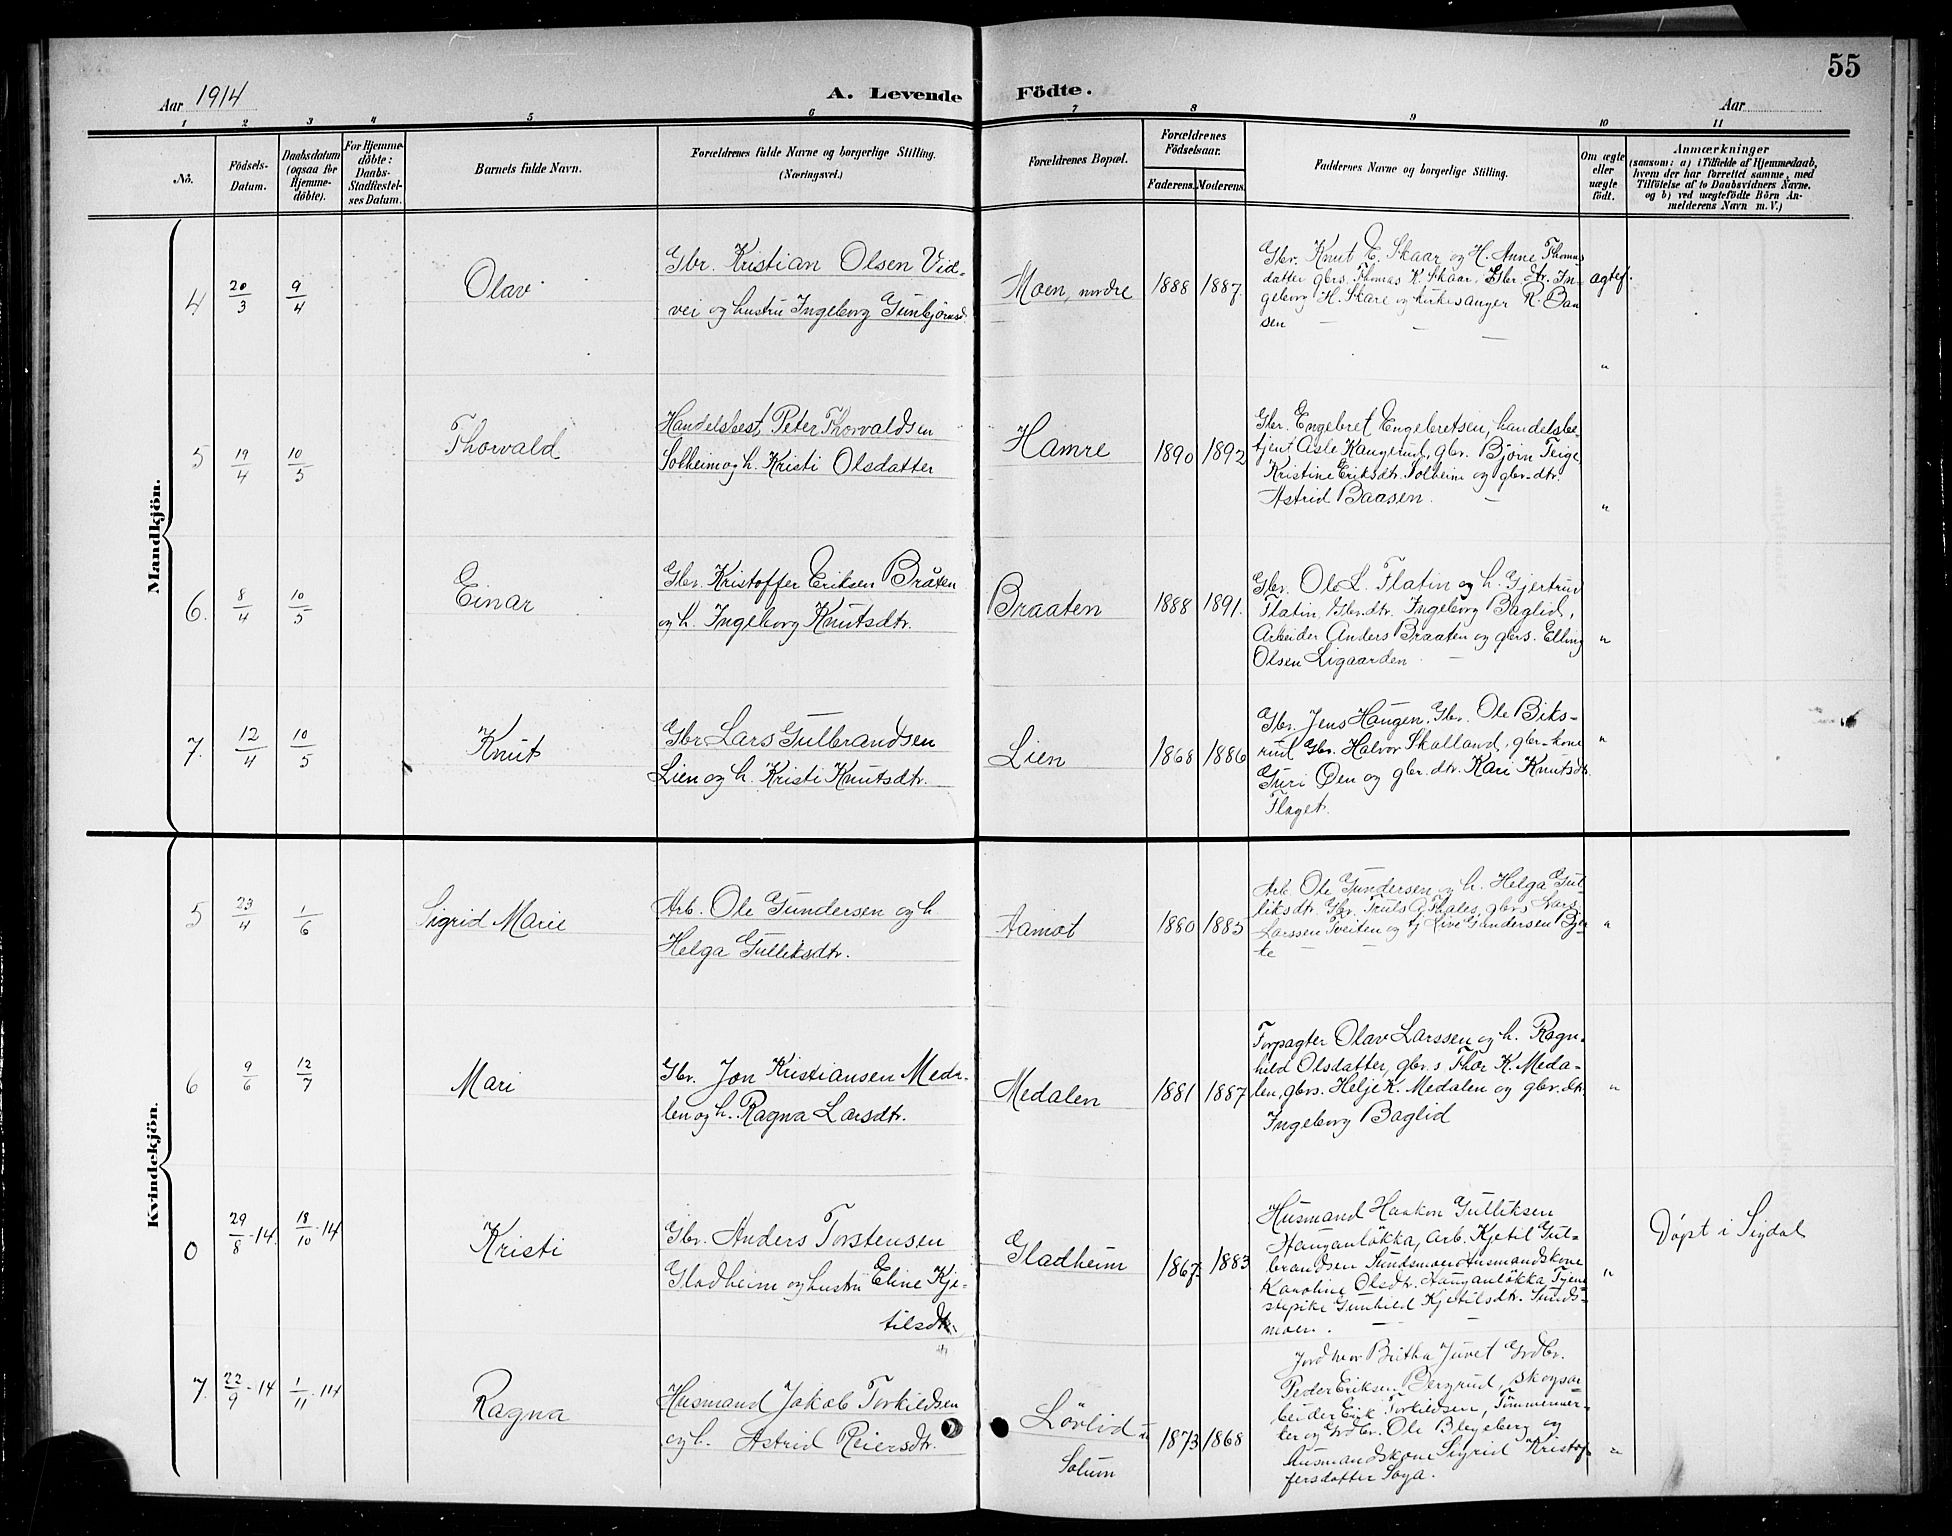 55
Aar 1914
A. Levende Födte.
Aar
1 2 3 4 5 6 7 8 9 10 11
No.
Födsels-
Datum.
Daabsdatum
(ogsaa for
Hjemme-
döbte).
For Hjemme-
döbte:
Daabs-
Stadfæstel-
ses Datum.
Barnets fulde Navn.
Forældrenes fulde Navne og borgerlige Stilling.
(Næringsvei.)
Forældrenes Bopæl.
Forældrenes
Födselsaar.
Faderens. Moderens.
Faddernes Navne og borgerlige Stilling.
Om ægte
eller
uægte
födt.
Anmærkninger
(saasom: a) i Tilfælde af Hjemmedaab,
hvem der har forrettet samme, med
Tilföielse af to Daabsvidners Navne,
og b) ved uægtefödte Börn An-
melderens Navn m. V.)
Mandkjön.
4
20/3
9/4
Olav
Gbr. Kristian Olsen Vid-
vei og hustru Ingeborg Gunbjørnsd.
Moen, nordre
1888 1887.
Gbr. Knut E. Skaar og H. Anne Thomas
datter gbrs. Thomas K. Skaar, Gbr. dtr. In-
geborg H. Skare og kirkesanger R. Baa
sen
ægtef.
"
5
19/4
10/5
Thorvald
Handelsbest. Peter Thorvaldsen
Solheim og h. Kristi Olsdatter
Hamre
1890 1892
Gbr. Engebret Engebretsen, handelsbe-
tjent Asle Kaugerud, gbr. Bjørn Teige
Kristine Eriksdtr. Solheim og gbr.-dtr.
Astrid Baasen.
"
6.
8/4
10/5
Einar
Gbr. Kristoffer Eriksen Bråten
og h. Ingeborg Knutsdtr.
Braaten
1888 1891.
Gbr. Ole L. Flatin og h. Gjertrud
Flatin, Gbr.dtr. Ingeborg Baglid,
Arbeider Anders Braaten og gbrs. Elling
Olsen Ligaarden
"
7.
12/4
10/5
Knut
Gbr. Lars Gulbrandsen
Lien og h. Kristi Knutsdtr.
Lien
1868 1886
Gbr. Jens Haugen, Gbr. Ole Biks-
rud Gbr. Halvor Skalland, gbr-kone
Guri Øen og gbr. dtr. Kari Knutsdtr.
Flaget.
"
Kvindekjön.
5
23/4
1/6
Sigrid Marie
Arb. Ole Gundersen og h
Helga Gulliksdtr.
Aamot
1880 1885
Arb. Ole Gundersen og h. Helga Gul
liksdtr. Gbr. Truls A. Thales, gbrs Lars
Larssen Tveiten og Live Gundersen Bjer-
te
"
6
9/6
12/7
Mari
Gbr. Jon Kristiansen Meda-
len og h. Ragna Larsdtr.
Medalen
1881 1887
Forpagter Olav Larssen og h. Ragn-
hild Olsdatter, gbr.s Thor K. Meda-
len, gbrs. Helje K. Medalen og gbr. dtr.
Ingeborg Baglid
"
0
29/8-14
18/10-14
Kristi
Gbr. Anders Torstensen
Gladheim og hustru Eline Kje-
tilsdtr.
Gladheim
1867- 1883
Husmand Haakon Gulliksen
Hauganløkka, Arb. Kjetil Gul-
brandsen Sundsmoen Husmandskone
Karoline Olsdtr. Hauganløkka Tjene
stepike Gunhild Kjetilsdtr. Sunds-
moen.
"
Døpt i Sigdal
7.
22/9-14
1/11-14
Ragna
Husmand Jakob Torkildsen
og h. Astrid Reiersdtr.
Løvlid u
Solum
1873 1868
Jordmor Britha Juvet Grdbr.
Peder Eriksen Bergrud, skogsar-
beider Eirk Torkildsen, Tømmermer-
ker og Grdbr. Ole Blegeberg og
Husmandskone Sigrid Kristof-
fersdatter Soya.
"